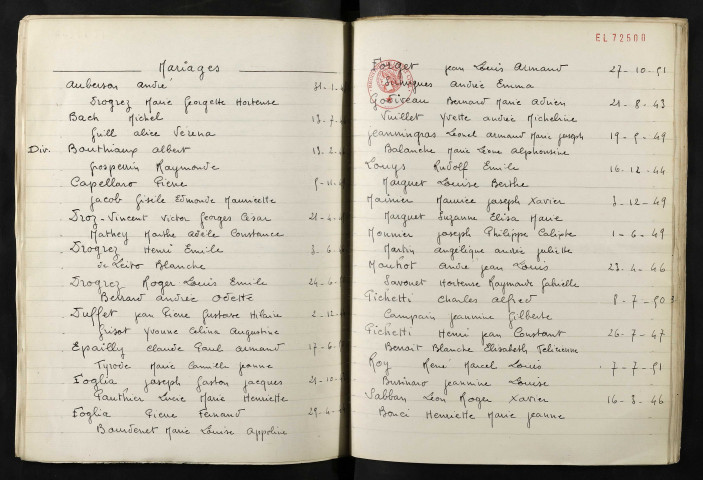 Mariages
Auberson André 31-1-
Drogrez Marie Georgette Hortense
Bach Michel 13-7-
Guill Alice Vérena
Div. Bouthiaux Albert 13-2-
Grosperrin Raymonde
Capellaro Pierre 5-11-
Jacob Gisèle Edmonde Mauricette
Droz-Vincent Victor Georges César 21-4-
Mathey Marthe Adèle Constance
Drogrez Henri Emile 3-6-
de Leito Blanche
Drogrez Roger Louis Emile 24-6-
Bernard Andrée Odette
Duffet Jean Pierre Gustave Hilaire 2-12-
Grisot Yvonne Célina Augustine
Epailly Claude Paul Armand 17-6-
Tyrode Marie Camille Jeanne
Foglia Joseph Gaston Jacques 21-10-
Gauthier Lucie Marie Henriette
Foglia Pierre Fernand 29-4-
Baudenet Marie Louise Appoline
EL72500
Forget Jean Louis Armand 27-10-51
André Emma
Goriveau Bernard Marie Adrien 21-8-43
Vuillet Yvette Andrée Micheline
Jeanningros Lionel Armand Marie Joseph 19-9-49
Balanche Marie Léone Alphonsine
Louys Rudolf Emile 16-12-44
Marguet Louise Berthe
Mainier Maurice Joseph Xavier 3-12-49
Marguet Suzanne Elisa Marie
Monnier Joseph Philippe Calixte 1-6-49
Martin Angélique Andrée Juliette
Mouhot André Jean Louis 23-4-46
Savonet Hortense Raymonde Gabrielle
Pichetti Charles Alfred 8-7-50
Campain Jeannine Gilberte
Pichetti Henri Jean Constant 26-7-47
Benoit Blanche Elisabeth Félicienne
Roy René Marcel Louis 7-7-51
Businaro Jeannine Louise
Sabban Léon Roger Xavier 16-3-46
Bonci Henriette Marie Jeanne